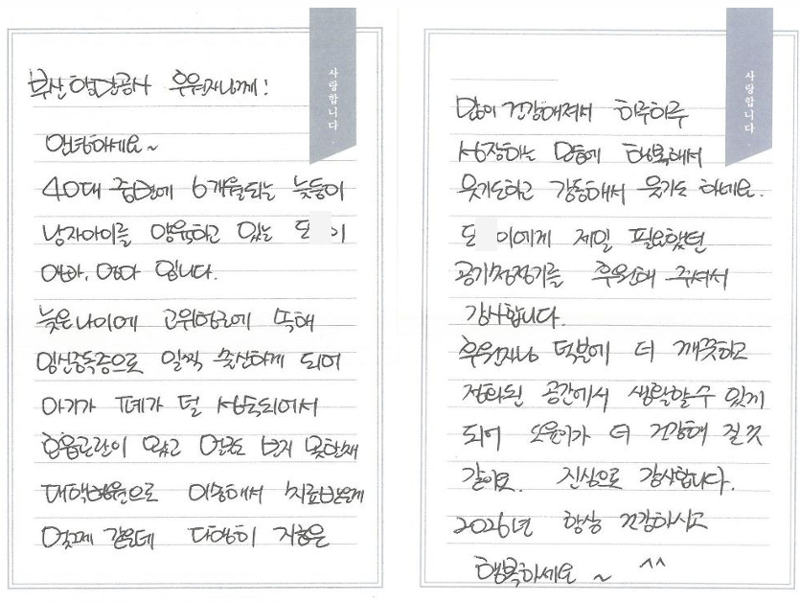 사랑합니다.
부산항만공사 후원자님께!
안녕하세요~
40대 중반에 6개월되는 늦둥이
남자아이를 양육하고 있는 도 이
아빠, 엄마 입니다.
늦은나이에 고위험군에 속해
임신중독증으로 일찍 출산하게 되어
아기가 폐가 덜 성숙되어서
호흡곤란이 왔고 얼굴도 보지 못한채
대학병원으로 이송해서 치료받은게
엊그제 같은데 다행히 지금은
사랑합니다.
많이 건강해져서 하루하루
성장하는 모습에 행복해서
웃기도하고 감동해서 웃기도 하네요.
도 이에게 제일 필요했던
공기청정기를 후원해 주셔서
감사합니다.
후원자님 덕분에 더 깨끗하고
정화된 공간에서 생활할수 있게
되어 더 건강해 질것
같아요. 진심으로 감사합니다.
2026년 항상 건강하시고
행복하세요 ~ ^^